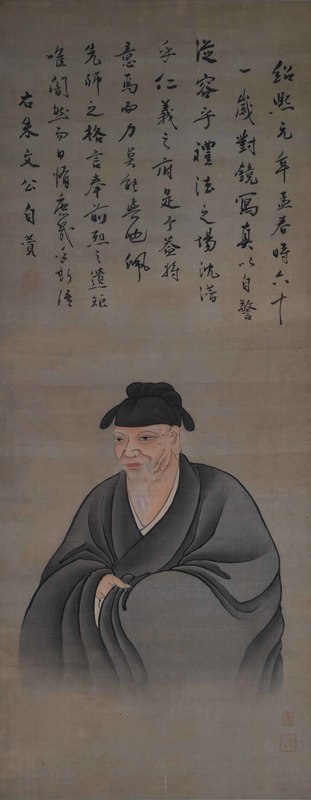 紹熙元年孟春時六十
一歲對鏡寫真以自警
從容乎禮法之場沈潛
乎仁義之府是予蓋將
意焉而力莫能與也佩
先師之格言奉前烈之遺矩
唯闇然而日脩庶幾乎斯語
右朱文公自贊